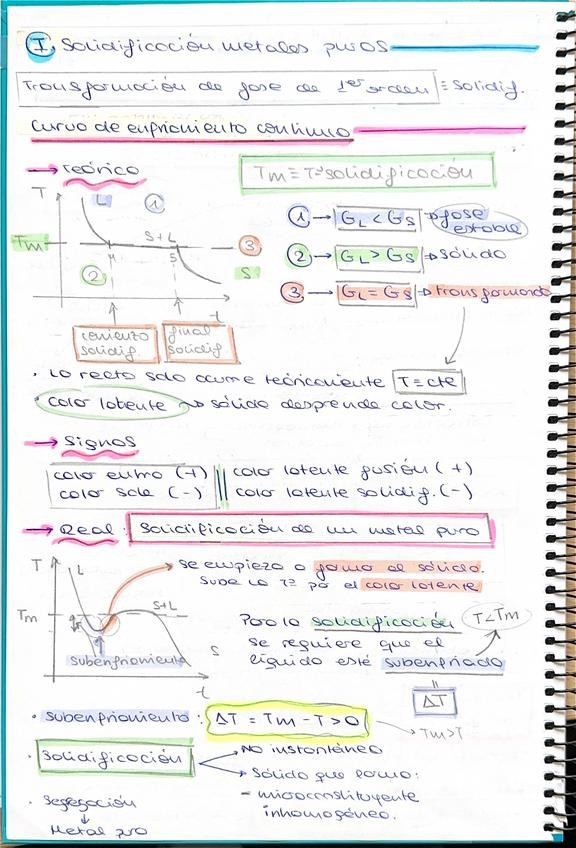 I. Solidificación metales puros
Transformación de fase de 1er orden ≡ solidif.
Curva de enfriamiento continuo
→ Teórico
Tm ≡ Tª solidificación
T
L
1
Tm
S+L
3
2
S
t
comienzo solidif.
final solidif
1 → GL < GS → fase estable
2 → GL > GS → sólido
3 → GL = GS → transformando
· La recta solo ocurre teóricamente T = cte
· calor latente → sólido desprende calor.
→ Signos
calor entra (+) || calor latente fusión (+)
calor sale (-) || calor latente solidif. (-)
→ Real: Solidificación de un metal puro
T
L
Tm
S+L
S
subenfriamiento
t
se empieza a formar el sólido.
Sube la Tª por el calor latente
Para la solidificación T<Tm
se requiere que el
líquido esté subenfriado
ΔT
· Subenfriamiento: ΔT = Tm - T > 0
→ Tm>T
· Solidificación
→ No instantáneo
→ Sólido que forma:
- microconstituyente
inhomogéneo.
· Segregación
↓
Metal pro